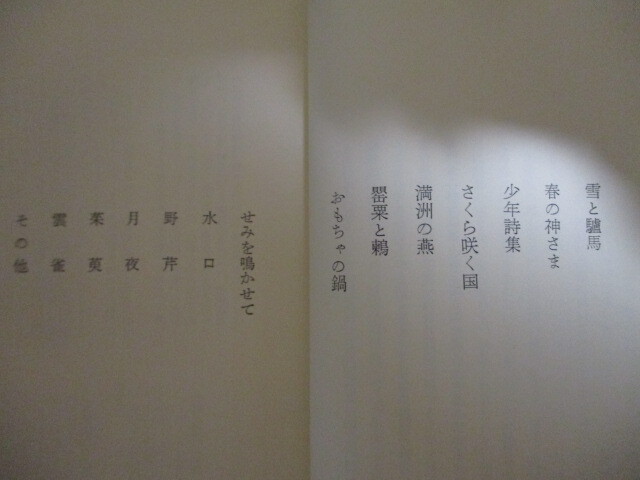 雪と驢馬
春の神さま
少年詩集
さくら咲く国
満洲の燕
罌粟と鶫
おもちゃの鍋
せみを鳴かせて
水口
野芹
月夜
茱萸
雲雀
その他